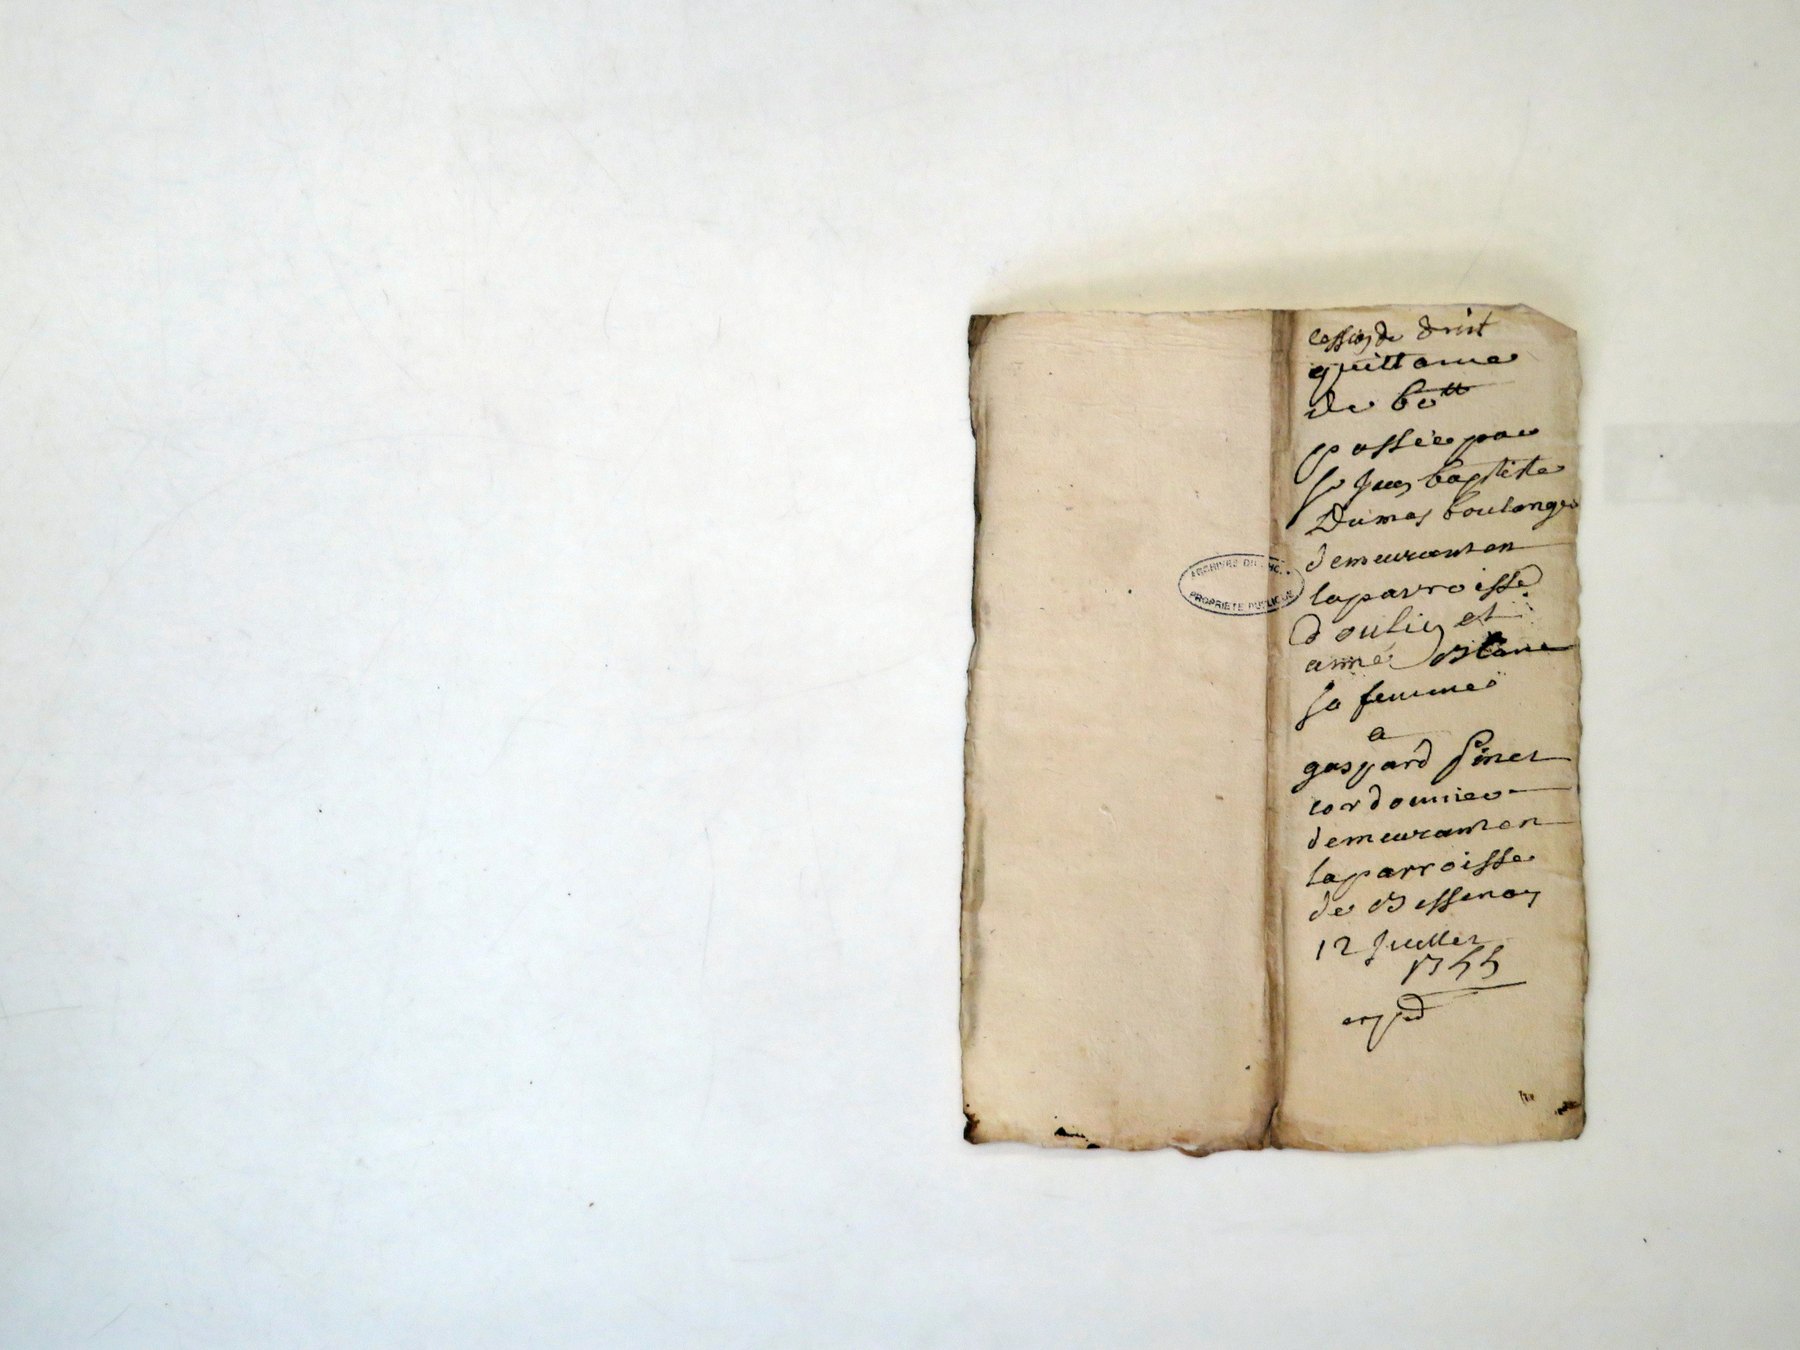 Cession de droit
quittance
de 60ᵗᵗ
passée par
sʳ Jean baptiste
Dumas boulanger
demeurant en
la parroisse
d'oulin et
anne Blanc
sa femme
a
gaspard Pinet
cordonnier
demeurant en
la parroisse
de Bessenay
12 Juillet
1755
exped
ARCHIVES DU RHÔ..
PROPRIETE PUBLIQUE